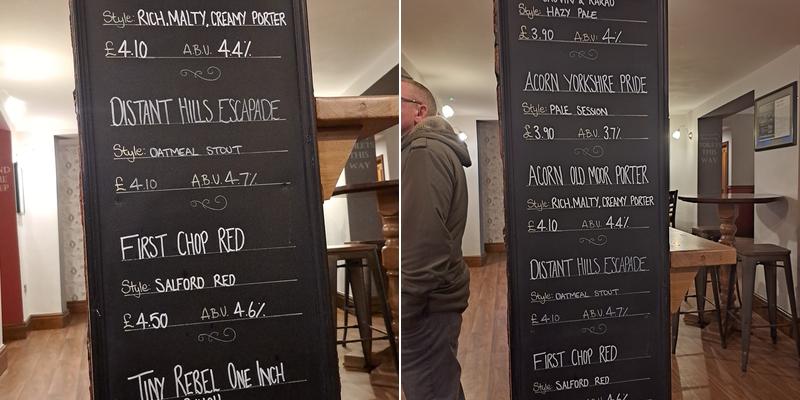 Style: RICH, MALTY, CREAMY PORTER
£4.10 A.B.V. 4.4%
DISTANT HILLS ESCAPADE
Style: OATMEAL STOUT
£4.10 A.B.V. 4.7%
FIRST CHOP RED
Style: SALFORD RED
£4.50 A.B.V. 4.6%
TINY REBEL ONE INCH
THIS
WAY
Style: HAZY PALE
£3.90 A.B.V: 4%
ACORN YORKSHIRE PRIDE
Style: PALE SESSION
£3.90 A.B.V. 3.7%
ACORN OLD MOOR PORTER
Style: RICH, MALTY, CREAMY PORTER
£4.10 A.B.V. 4.4%
DISTANT HILLS ESCAPADE
Style: OATMEAL STOUT
£4.10 A.B.V. 4.7%
FIRST CHOP RED
Style: SALFORD RED
4.6%
TOILETS
THIS
WAY